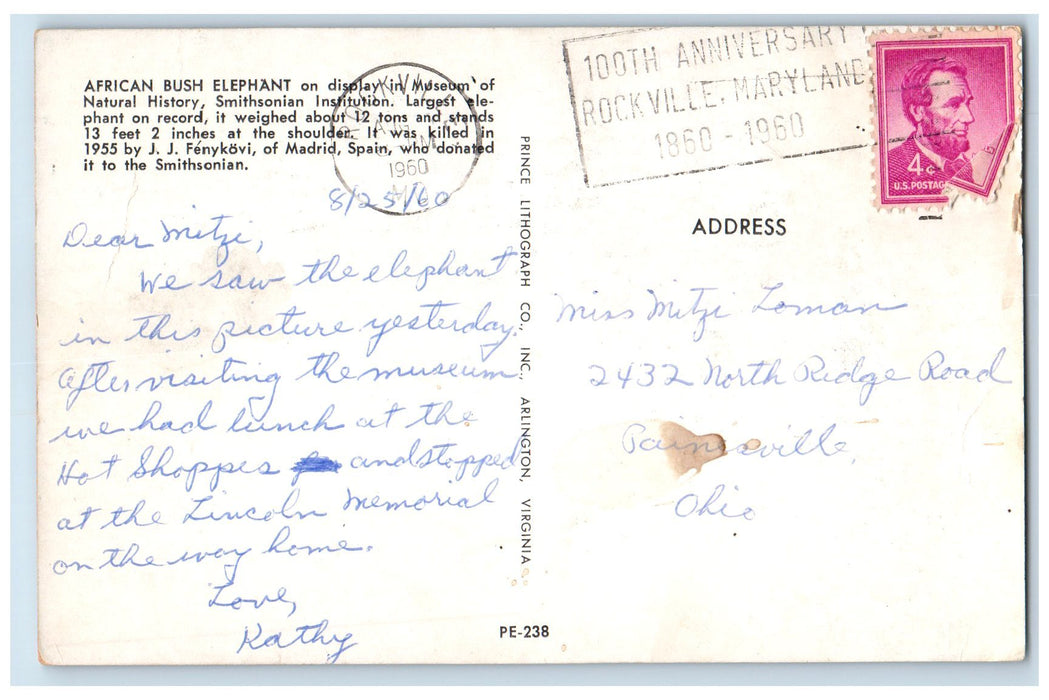 AFRICAN BUSH ELEPHANT on display in Museum of
Natural History, Smithsonian Institution. Largest ele-
phant on record, it weighed about 12 tons and stands
13 feet 2 inches at the shoulder. It was killed in
1955 by J. J. Fénykövi, of Madrid, Spain, who donated
it to the Smithsonian.
1960
8/25/60
Dear Mitzi,
We saw the elephant
in this picture yesterday.
After visiting the museum
we had lunch at the
Hot Shoppes and stopped
at the Lincoln Memorial
on the way home.
Love,
Kathy
PRINCE LITHOGRAPH CO., INC., ARLINGTON, VIRGINIA
PE-238
100TH ANNIVERSARY
ROCKVILLE, MARYLAND
1860 - 1960
4¢
U.S. POSTAGE
ADDRESS
Miss Mitzi Loman
2432 North Ridge Road
Painesville,
Ohio